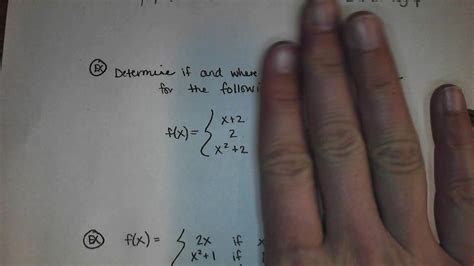 Ex Determine if and where
for the
f(x) = { x+2
2
x²+2
Ex f(x) = { 2x if x
x²+1 if